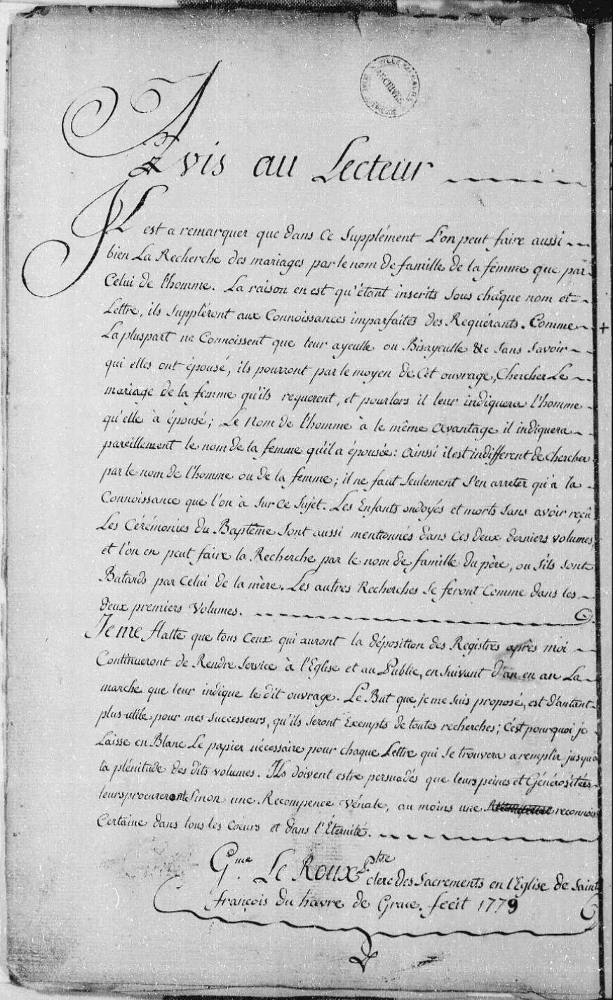 Avis au Lecteur
Il est a remarquer que dans ce Supplément l'on peut faire aussi
bien La Recherche des mariages par le nom de famille de la femme que par
Celui de l'homme. La raison en est qu'étant inscrits sous chaque nom et
Lettre, ils Suppléront aux Connoissances imparfaites des Requérants. Comme
La pluspart ne Connoissent que leur ayeulle ou Bisayeulle &c Sans Savoir
qui elles ont épousé, ils pourront par le moyen de Cet ouvrage, Chercher Le
mariage de la femme qu'ils requerent, et pourlors il leur indiquera l'homme
qu'elle à épousé; Le Nom de l'homme à le même avantage il indiquera
pareillement le nom de la femme qu'il a épousée: ainsi il est indifferent de chercher
par le nom de l'homme ou de la femme; il ne faut Seulement S'en arreter qu'à la
Connoissance que l'on à Sur Ce Sujet. Les Enfants ondoyés et morts Sans avoir reçû
Les Cérémonies du Baptême Sont aussi mentionnés dans Ces deux derniers volumes
et l'on en peut faire la Recherche par le nom de famille du père, ou S'ils Sont
Batards par Celui de la mère. Les autres Recherches Se feront Comme dans les
deux premiers Volumes.
Je me flatte que tous Ceux qui auront la déposition des Registres après moi
Continueront de Rendre Service à l'Eglise et au Public, en Suivant d'an en an La
marche que leur indique le dit ouvrage. Le But que je me suis proposé, est d'autant
plus utile pour mes successeurs, qu'ils seront Exempts de toutes recherches; C'est pourquoi je
Laisse en Blanc Le papier nécessaire pour chaque Lettre qui Se trouvera a remplir jusqu'a
la plénitude des dits volumes. Ils doivent estre persuadés que leurs peines et Générosités
leurs procureront Sinon une Recompence Vénale, au moins une reconnois
Certaine dans tous les Coeurs et dans l'Éternité.
Gme Le Roux Ptre
clerc des Sacrements en l'Eglise de Saint
François du havre de Grace. fecit 1779
ARCHIVES